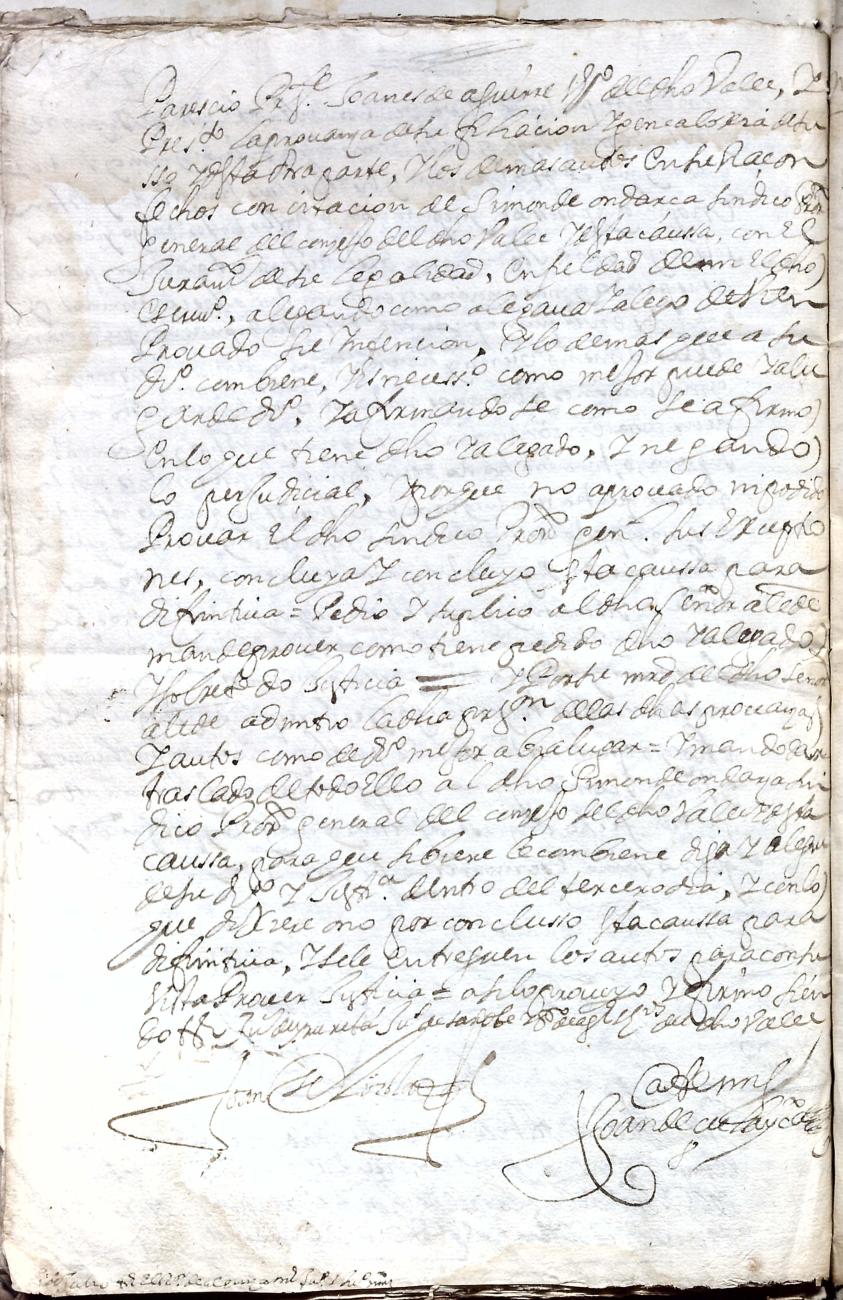 Parescio Pres.te Joanes de aguirre vzº del dho Valle, Y
Press.do la provança de su filiacion Y
ssa Y desta otra parte, Y los demas autos En su Raçon
fechos con citacion de Simon de ondarça sindico Pror
general del conçejo del dho Valle Y esta caussa, con El
Juram.to de su legalidad, En fieldad de mi El dho
Escriu.º, alegando como alegava Y alego de Vien
Provado su Intencion, Y lo demas que a su
drº. combiene, Y es necess.º como mejor puede Y a lu
gar de drº, Y afirmandose como se afirmo
En lo que tiene dho Y alegado, Y negando
lo perjudicial, Y porque no a provado ni podido
Provar El dho sindico Pror gen.l sus Excepcio
nes, concluya Y concluyo Esta caussa para
difinitiva = Pedio Y suplico al dho señor alcde
mande prover como tiene pedido dho Y alegado
Y sobre todo Justicia = Y Por su mrd del dho señor
alcde admitio la dha press.on de las dhas provanças
Y autos como de drº mejor abia lugar = Y mando dar
traslado de todo Ello al dho Simon de ondarça sin
dico Pror general del conçejo del dho Valle Y esta
caussa, para que si Viere le combiene diga Y alegue
de su drº Y Just.ª dentro del tercero dia, Y con lo
que dixere o no por conclusso Esta caussa para
difinitiva, Y se le entreguen los autos para con su
Vista Prover Justicia = assi lo proveyo Y firmo sien
do tt.os Ju.º de del dho Valle
Joan de
Ante mi
Joan de